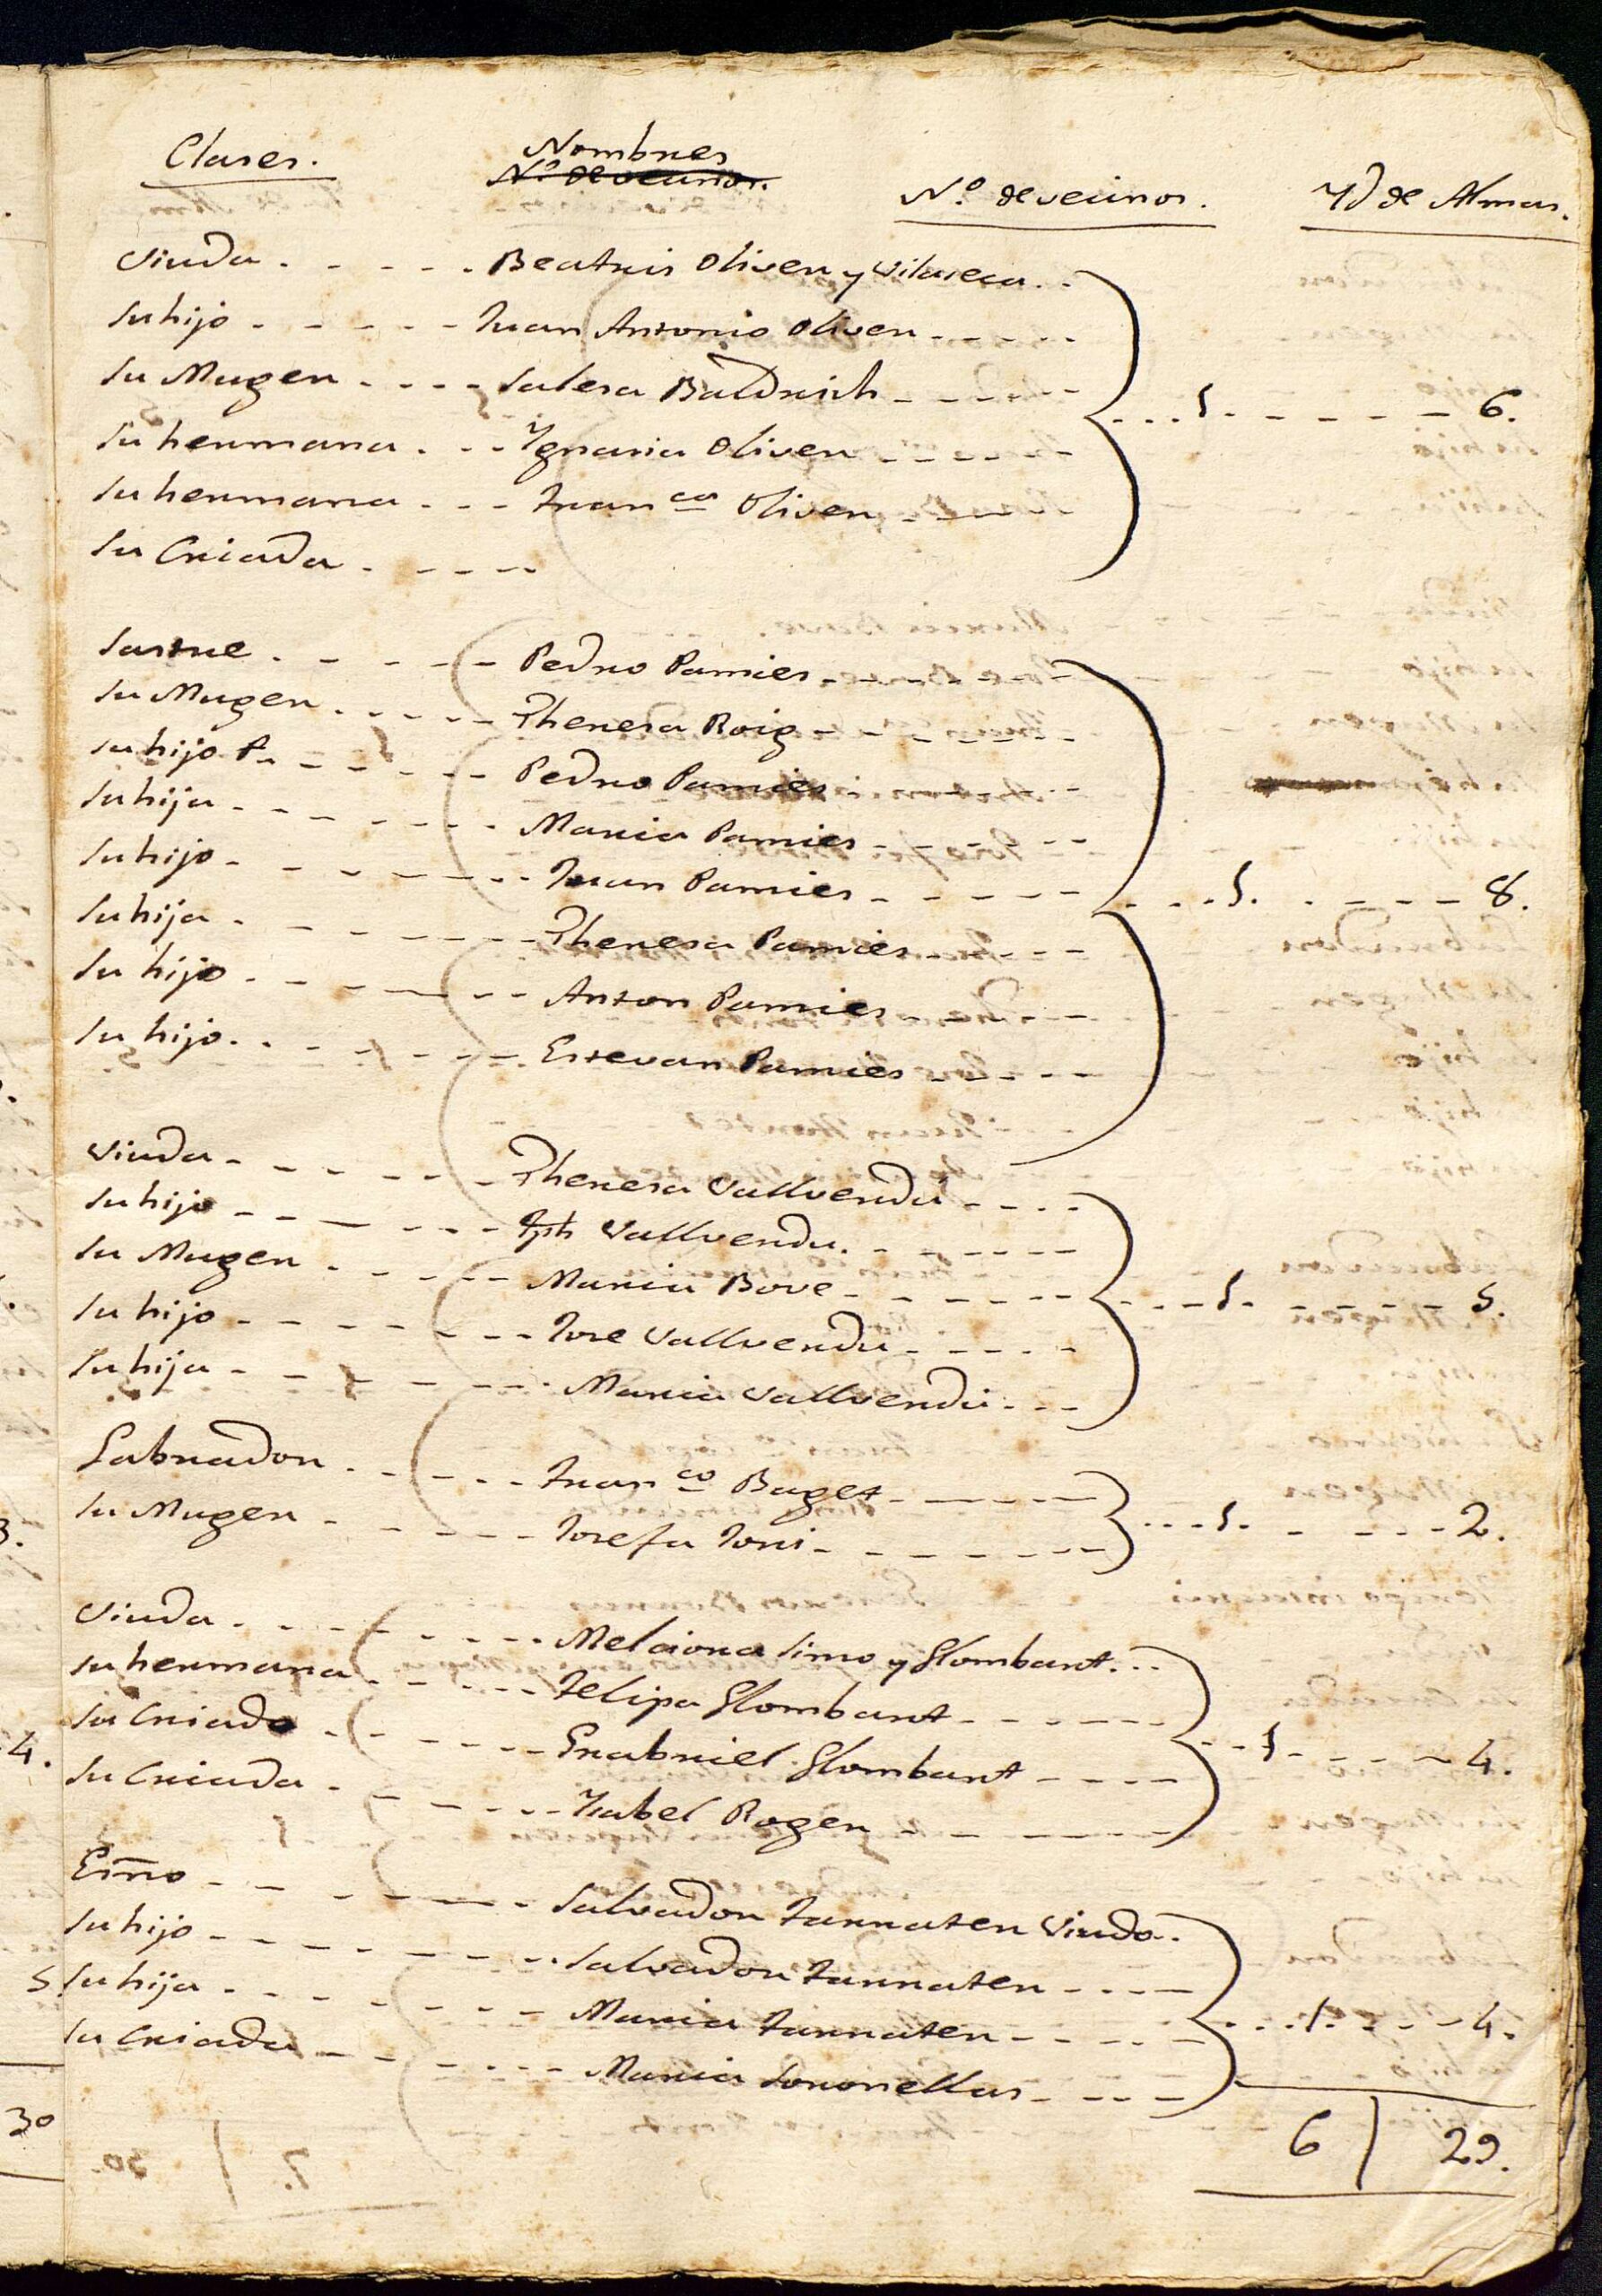 Clases. Nombres N.º de vecinos. Yd de Almas.
N.º de vecinos.
Viuda - - - - Beatris Oliver y Vilaseca - -
Su hijo - - - - Juan Antonio Oliver - - - -
Su Muger - - - - Salesa Baldrich - - - - 1. - - - - 6.
Su hermana - - - Ygnasia Oliver - - - -
Su hermana - - - Fran.ca Oliver - - - -
Su Criada - - - -
Sastre - - - - Pedro Pamies - - - -
Su Muger - - - - Theresa Roig - - - -
Su hijo - - - - Pedro Pamies - - - -
Su hija - - - - Maria Pamies - - - -
Su hijo - - - - Juan Pamies - - - - 1. - - - - 8.
Su hija - - - - Theresa Pamies - - - -
Su hijo - - - - Anton Pamies - - - -
Su hijo - - - - Estevan Pamies - - - -
Viuda - - - - Theresa Vallverdu - - - -
Su hijo - - - - Jph Vallverdu - - - -
Su Muger - - - - Maria Bove - - - - 1. - - - - 5.
Su hijo - - - - Jose Vallverdu - - - -
Su hija - - - - Maria Vallverdu - - -
Labrador - - - - Fran.co Baget - - - - 1. - - - - 2.
Su Muger - - - - Josefa Tori - - - -
Viuda - - - - Melciora Simo y Glombart - - -
Su hermana - - - - Felipa Glombart - - - -
Su Criado - - - - Grabriel Glombart - - - - 1. - - - - 4.
Su Criada - - - - Ysabel Roger - - - -
Essno - - - - Salvador Tarrater Viudo - -
Su hijo - - - - Salvador Tarrater - - - -
Su hija - - - - Maria Tarrater - - - - 1. - - - - 4.
Su Criada - - - - Maria Soronellas - - - -
6 | 29.